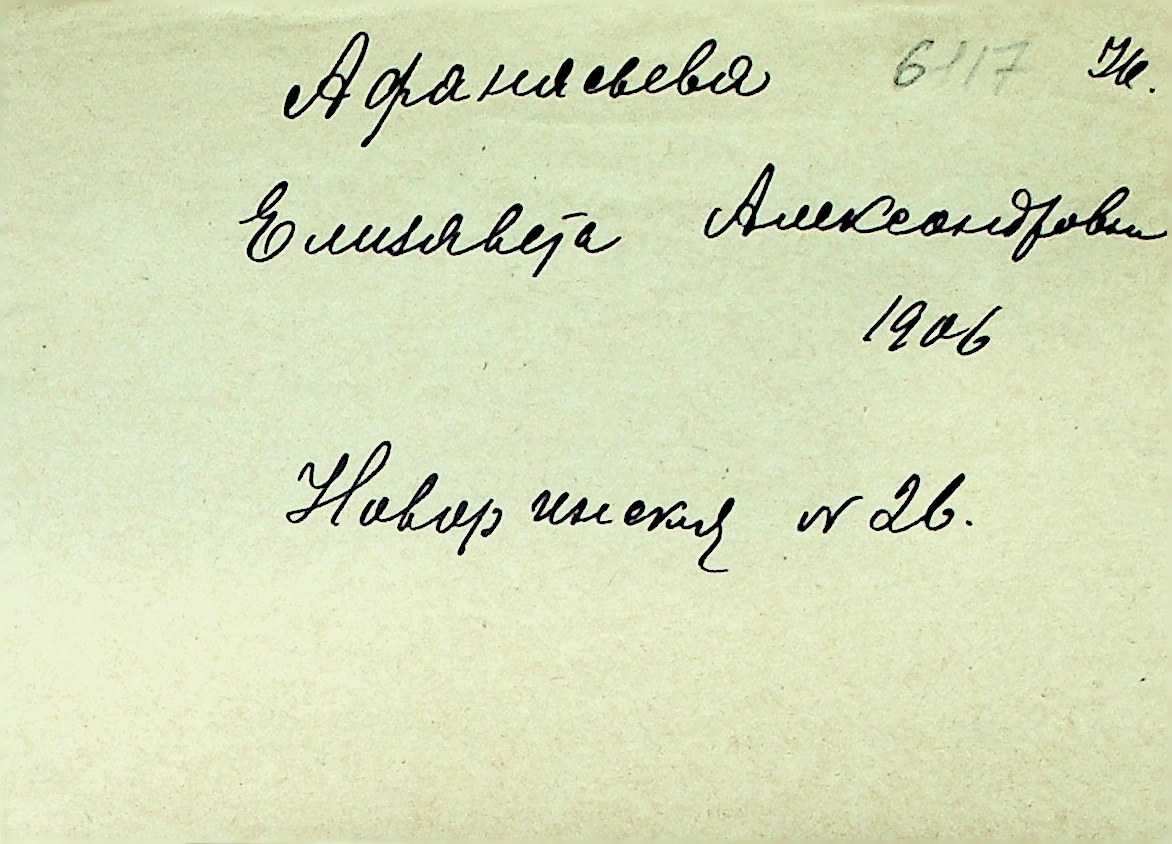 Афанасьева 6117 Ж.
Елизавета Александровна
1906
Новоринская № 26.